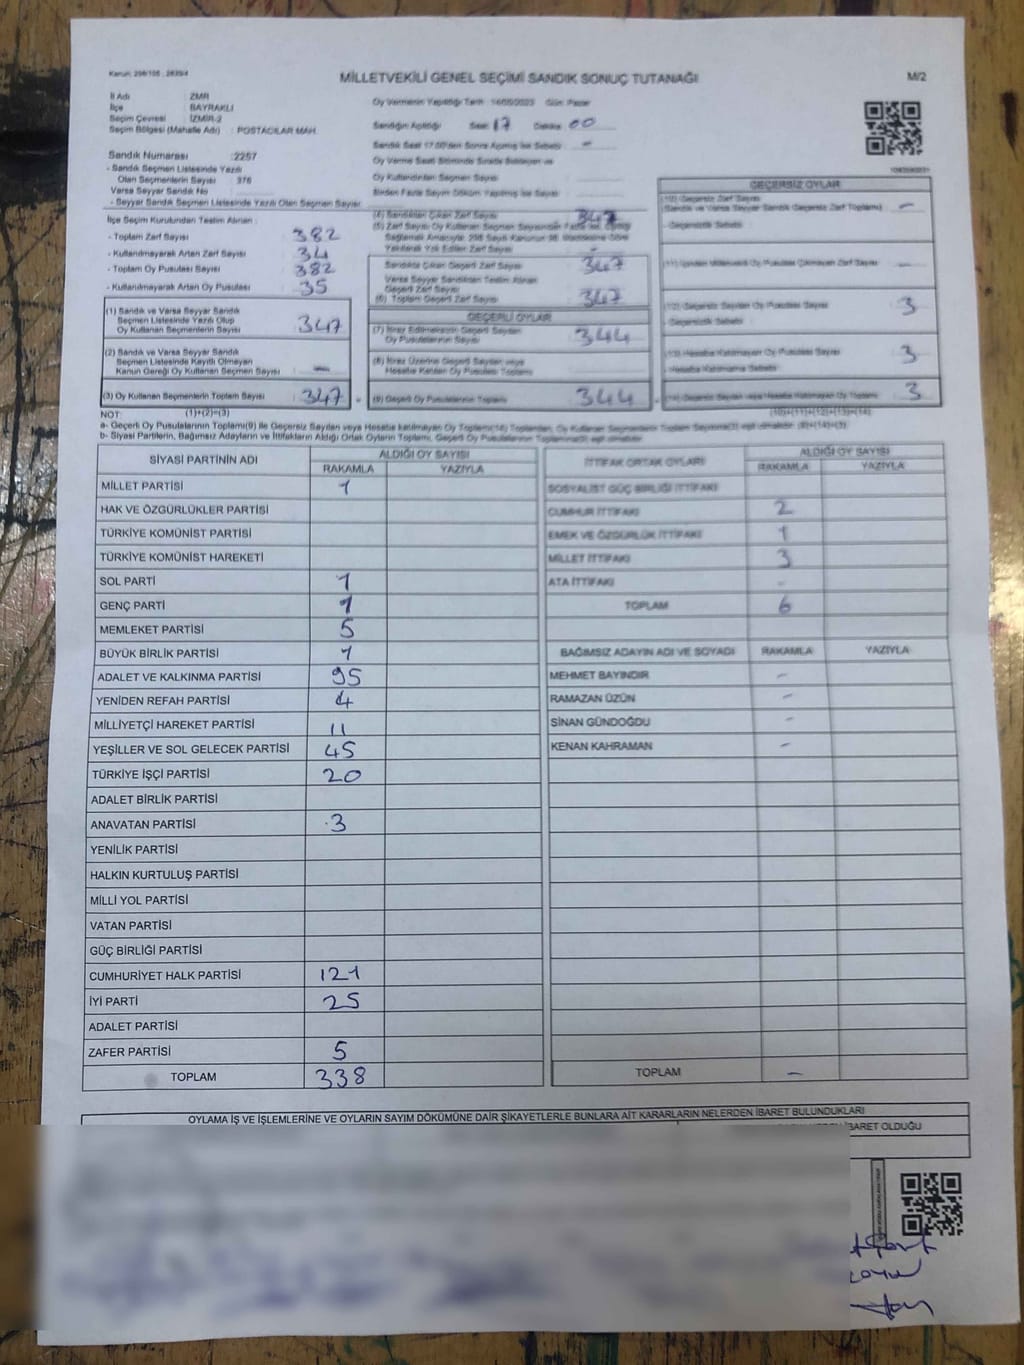 Kanun: 298/105 , 2839/4
MİLLETVEKİLİ GENEL SEÇİMİ SANDIK SONUÇ TUTANAĞI
M/2
İl Adı : ZMR
İlçe : BAYRAKLI
Seçim Çevresi : İZMİR-2
Seçim Bölgesi (Mahalle Adı) : POSTACILAR MAH.
Oy Vermenin Yapıldığı Tarih Gün: Pazar
Sandığın Açıldığı Saat: 17 Dakika: 00
Sandık Saat 17.00'den Sonra Açılmış İse Sebebi : -
Sandık Numarası :2257
- Sandık Seçmen Listesinde Yazılı
Olan Seçmenlerin Sayısı : 376
Varsa Seyyar Sandık No
- Seyyar Sandık Seçmen Listesinde Yazılı Olan Seçmen Sayısı
Oy Kullandırılan Seçmen Sayısı
Birden Fazla Sayım Döküm Yapılmış İse Sayısı
İlçe Seçim Kurulundan Teslim Alınan :
- Toplam Zarf Sayısı : 382
- Kullanılmayarak Artan Zarf Sayısı : 34
- Toplam Oy Pusulası Sayısı : 382
- Kullanılmayarak Artan Oy Pusulası : 35
(1) Sandık ve Varsa Seyyar Sandık
Seçmen Listesinde Yazılı Olup
Oy Kullanan Seçmenlerin Sayısı : 347
(2) Sandık ve Varsa Seyyar Sandık
Seçmen Listesinde Kayıtlı Olmayan
Kanun Gereği Oy Kullanan Seçmen Sayısı : -
(3) Oy Kullanan Seçmenlerin Toplam Sayısı : 347
(1)+(2)=(3)
(4) Sandıktan Çıkan Zarf Sayısı 347
Sandıkta Çıkan Geçerli Zarf Sayısı : 347
Varsa Seyyar Sandıktan Teslim Alınan
Geçerli Zarf Sayısı
(6) Toplam Geçerli Zarf Sayısı : 347
GEÇERLİ OYLAR
(7) İtiraz Edilmeksizin Geçerli Sayılan
Oy Pusulalarının Sayısı : 344
(8) İtiraz Üzerine Geçerli Sayılan veya
Hesaba Katılan Oy Pusulası Toplamı
(9) Geçerli Oy Pusulalarının Toplamı : 344
GEÇERSİZ OYLAR
(10) Geçersiz Zarf Sayısı
(Sandık ve Varsa Seyyar Sandık Geçersiz Zarf Toplamı) : -
- Geçersizlik Sebebi :
-
3
- Geçersizlik Sebebi :
(13) Hesaba Katılmayan Oy Pusulası Sayısı : 3
- Hesaba Katılmama Sebebi :
(14) Geçersiz Sayılan veya Hesaba Katılmayan Oy Toplamı : 3
(10)+(11)+(12)+(13)=(14)
NOT:
a- Geçerli Oy Pusulalarının Toplamı(9) ile Geçersiz Sayılan veya Hesaba katılmayan Oy Toplamı(14) Toplamları, Oy Kullanan Seçmenlerin Toplam Sayısına(3) eşit olmalıdır. (9)+(14)=(3)
b- Siyasi Partilerin, Bağımsız Adayların ve İttifakların Aldığı Ortak Oyların Toplamı, Geçerli Oy Pusulalarının Toplamına(9) eşit olmalıdır.
SİYASİ PARTİNİN ADI ALDIĞI OY SAYISI
RAKAMLA YAZIYLA
MİLLET PARTİSİ 1
HAK VE ÖZGÜRLÜKLER PARTİSİ
TÜRKİYE KOMÜNİST PARTİSİ
TÜRKİYE KOMÜNİST HAREKETİ
SOL PARTİ 1
GENÇ PARTİ 1
MEMLEKET PARTİSİ 5
BÜYÜK BİRLİK PARTİSİ 1
ADALET VE KALKINMA PARTİSİ 95
YENİDEN REFAH PARTİSİ 4
MİLLİYETÇİ HAREKET PARTİSİ 11
YEŞİLLER VE SOL GELECEK PARTİSİ 45
TÜRKİYE İŞÇİ PARTİSİ 20
ADALET BİRLİK PARTİSİ
ANAVATAN PARTİSİ 3
YENİLİK PARTİSİ
HALKIN KURTULUŞ PARTİSİ
MİLLİ YOL PARTİSİ
VATAN PARTİSİ
GÜÇ BİRLİĞİ PARTİSİ
CUMHURİYET HALK PARTİSİ 121
İYİ PARTİ 25
ADALET PARTİSİ
ZAFER PARTİSİ 5
TOPLAM 338
İTTİFAK ORTAK OYLARI ALDIĞI OY SAYISI
RAKAMLA YAZIYLA
SOSYALİST GÜÇ BİRLİĞİ İTTİFAKI
CUMHUR İTTİFAKI 2
EMEK VE ÖZGÜRLÜK İTTİFAKI 1
MİLLET İTTİFAKI 3
ATA İTTİFAKI -
TOPLAM 6
BAĞIMSIZ ADAYIN ADI VE SOYADI RAKAMLA YAZIYLA
MEHMET BAYINDIR -
RAMAZAN ÜZÜN -
SİNAN GÜNDOĞDU -
KENAN KAHRAMAN -
TOPLAM -
OYLAMA İŞ VE İŞLEMLERİNE VE OYLARIN SAYIM DÖKÜMÜNE DAİR ŞİKAYETLERLE BUNLARA AİT KARARLARIN NELERDEN İBARET BULUNDUKLARI
İBARET OLDUĞU